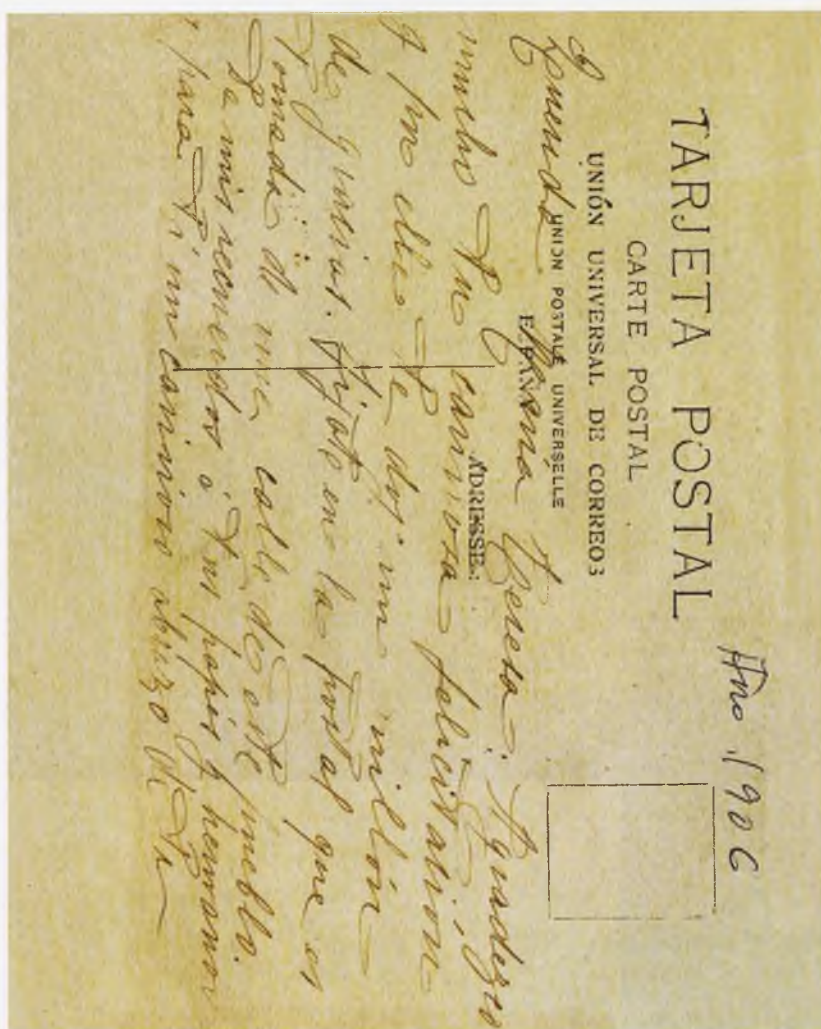 Año 1906
TARJETA POSTAL
CARTE POSTAL
UNIÓN UNIVERSAL DE CORREOS
UNION POSTALE UNIVERSELLE
ESPAÑA
ADRESSE:
Querida María Teresa: Agradezco
mucho tu cariñosa felicitación
y por ello te doy un millón
de gracias. Fíjate en la postal que es
tomada de una calle de este pueblo.
Da mis recuerdos á tus papás y hermanos
y para Tí un cariñoso abrazo de